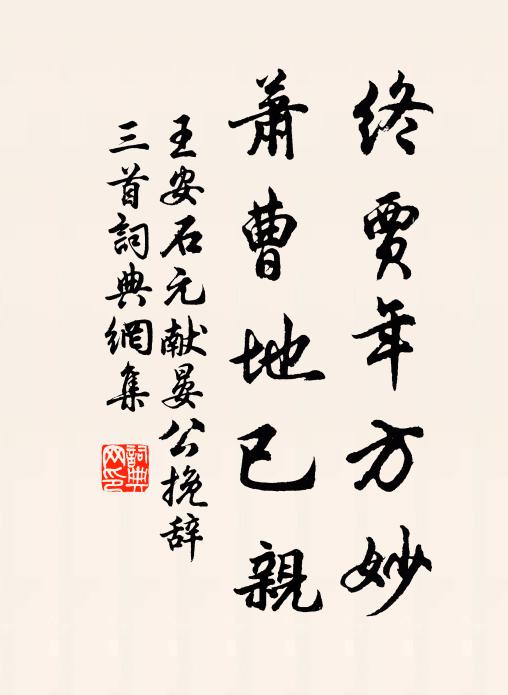 終賈年方妙
蕭曹地已親
王安石元献晏公挽辞
三首詞典網集
詞典
网印